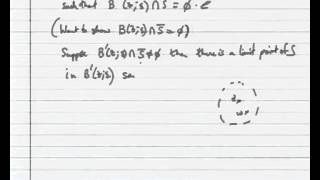 such that B (z;s) ∩ S = ϕ.
(Want to show B(z;s) ∩ S̅ = ϕ)
Suppose B'(z;s) ∩ S̅ ≠ ϕ then there is a limit point of S
in B'(z;s) say
z
w